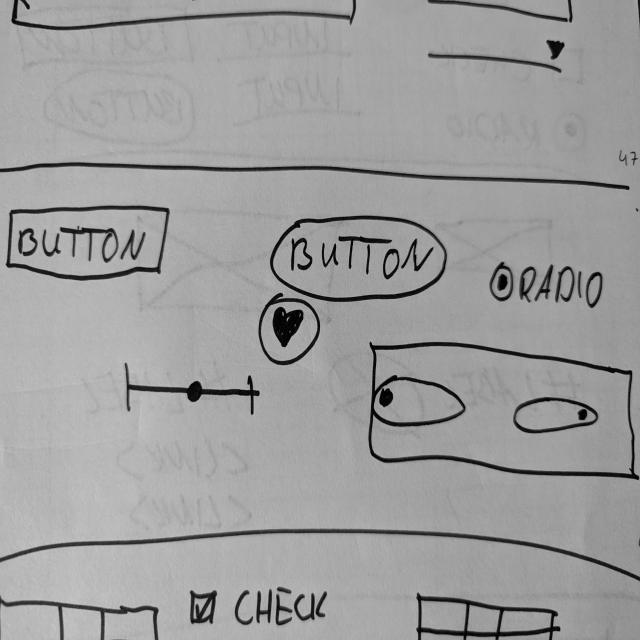 47
BUTTON
BUTTON
RADIO
CHECK